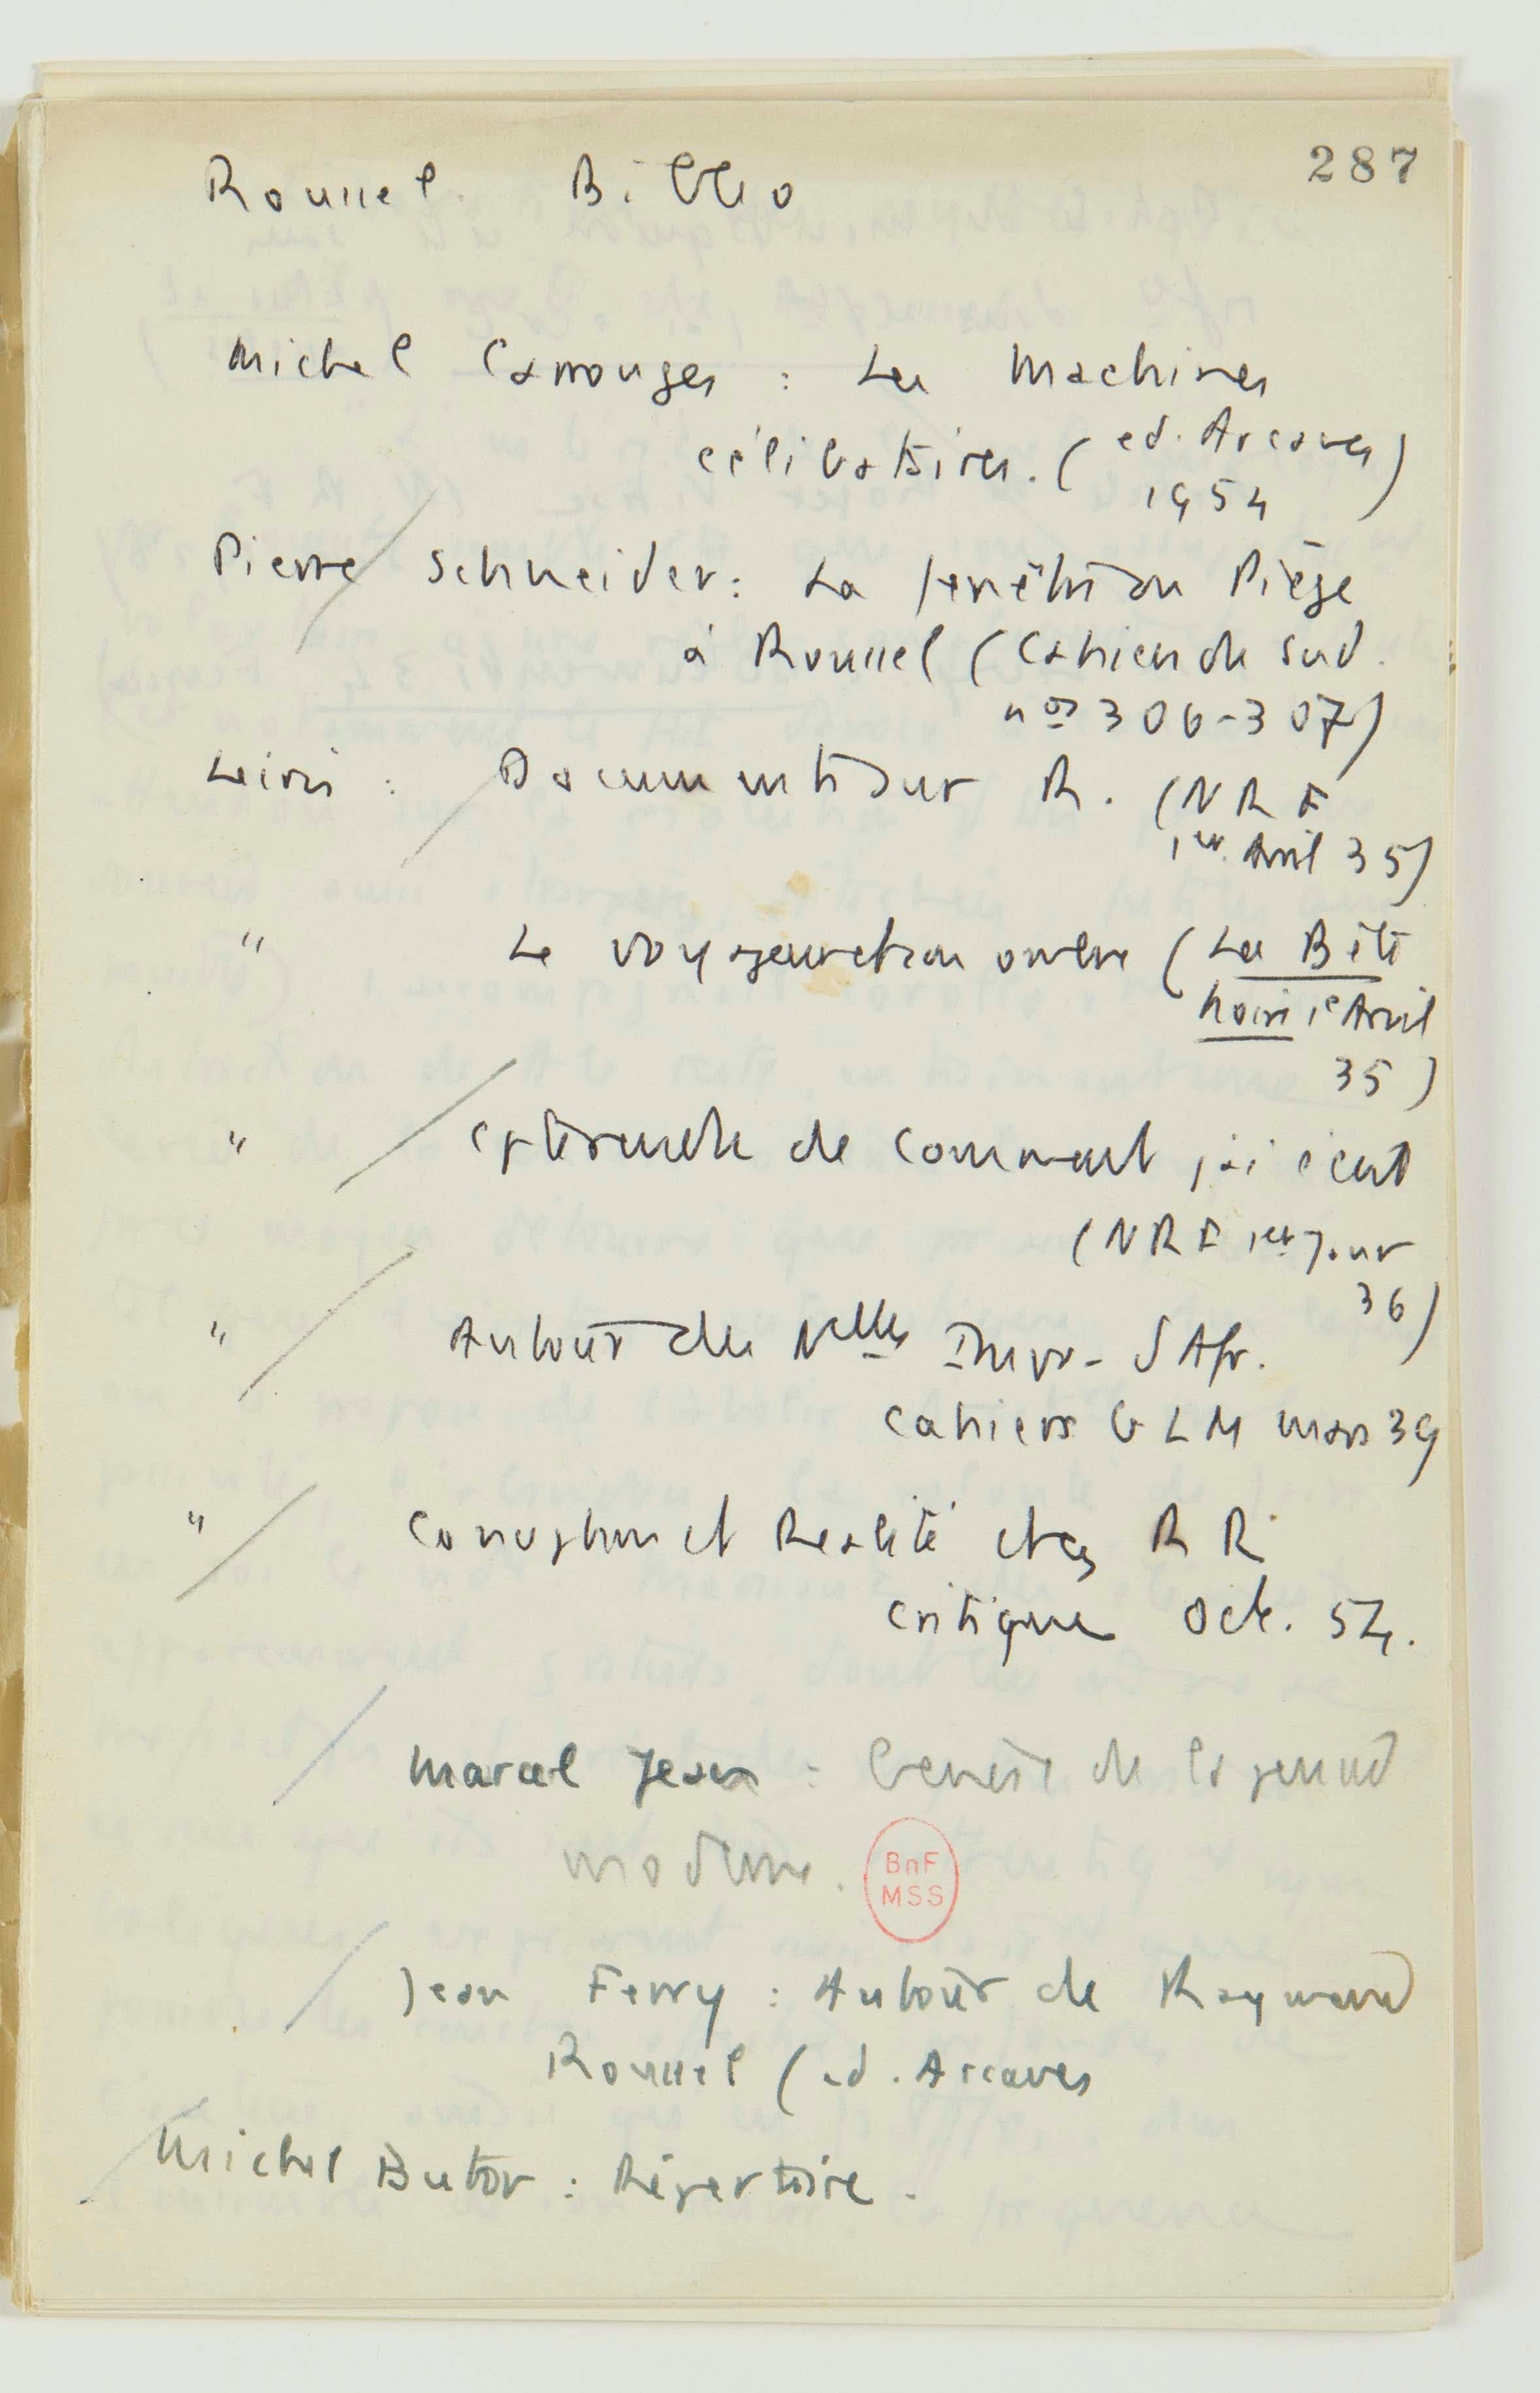 287
Roussel. Biblio
Michel Carrouges : Les Machines
célibataires. (ed. Arcanes)
1954
Pierre Schneider : La fenêtre ou Piège
à Roussel (Cahiers du Sud.
nos 306-307)
Leiris : Documents sur R. (NRF
1er. Avril 35)
" Le voyageur et son ombre (La Bête
noire 1e Avril
35)
" de Comment j'ai écrit
(NRF 1er Janv
36)
" Autour des Nelles Impr. d'Afr.
Cahiers GLM mars 39
" Conception et Réalité chez R R
Critique Oct. 54.
Marcel Jean : Genèse de la pensée
moderne.
BnF
MSS
Jean Ferry : Autour de Raymond
Roussel (ed. Arcanes
Michel Butor : Répertoire.